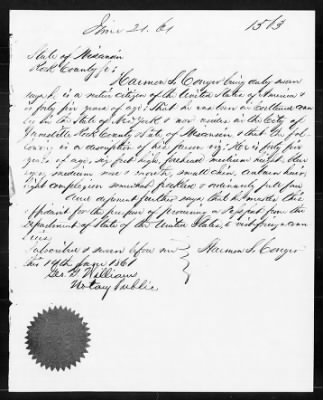 June 21. 61 1563
State of Wisconsin
Rock County ss
Harmon S. Conger being duly sworn
says he is a native citizen of the United States of America &
is forty five years of age; that he was born in Cortland coun
in the State of New York & now resides in the City of
Janesville Rock County State of Wisconsin & that the fol
lowing is a description of his person viz: He is forty five
years of age, six feet high, forehead medium height, blue
eyes, medium nose & mouth, small chin, auburn hair,
light complexion somewhat freckled & ordinarily full face
And deponent further says that he makes this
Affidavit for the purpose of procuring a Passport from the
Department of State of the United States, to visit foreign coun
tries.
Subscribed & sworn before me
this 19th June 1861
Harmon S. Conger
Geo. G. Williams
Notary Public